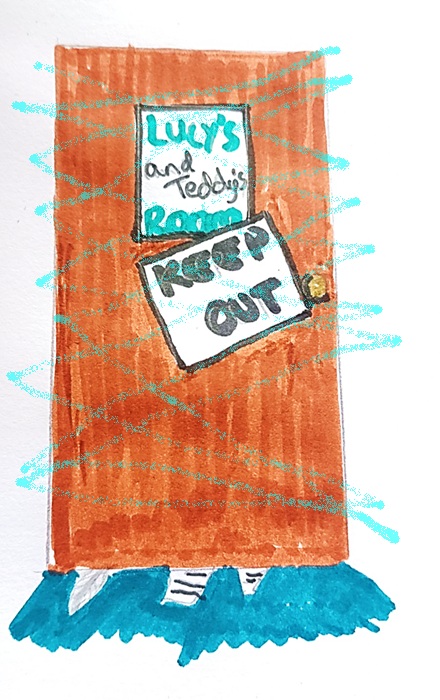 LUCY'S
and
Teddy's
ROOM
KEEP
OUT